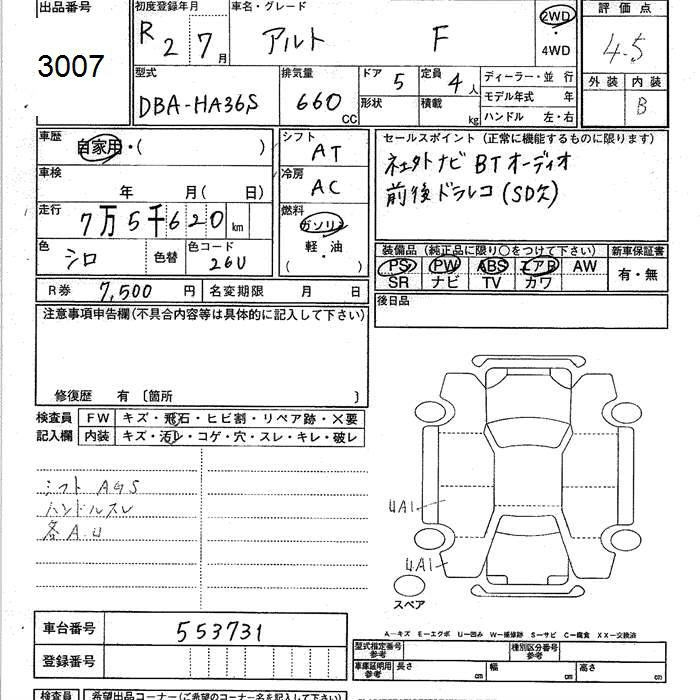 出品番号
3007
初度登録年月
R 2 7 月
車名・グレード
アルト F
2WD
・
4WD
評価点
4.5
外装 内装
B
型式
DBA-HA36S
排気量
660 CC
ドア 5
形状
定員 4 人
積載 kg
ディーラー・並 行
モデル年式 年
ハンドル 左・右
車歴
自家用・( )
車検
年 月( 日)
走行
7万5千620 km
色
シロ
色替
色コード
26U
シフト
AT
冷房
AC
燃料
ガソリン
軽・油
( )
セールスポイント (正常に機能するものに限ります)
ナビ BTオーディオ
前後ドラレコ(SD欠)
装備品 (純正品に限り○をつけて下さい)
PS PW ABS エアB AW
SR ナビ TV カワ
新車保証書
有・無
後日品
R券 7,500 円
名変期限 月 日
注意事項申告欄(不具合内容等は具体的に記入して下さい)
修復歴 有 〔箇所 〕
検査員
記入欄
FW キズ・飛石・ヒビ割・リペア跡・×要
内装 キズ・汚レ・コゲ・穴・スレ・キレ・破レ
シフト AGS
ハンドルスレ
各A.U
UA1
UA1
スペア
車台番号
553731
登録番号
A…キズ E…エクボ U…凹み W…補修跡 S…サビ C…腐食 XX…交換済
型式指定番号
参考
種別区分番号
参考
車庫証明用
参考
長さ cm
幅 cm
高さ cm
検査員
希望出品コーナー(ご希望のコーナー名を記入して下さい)